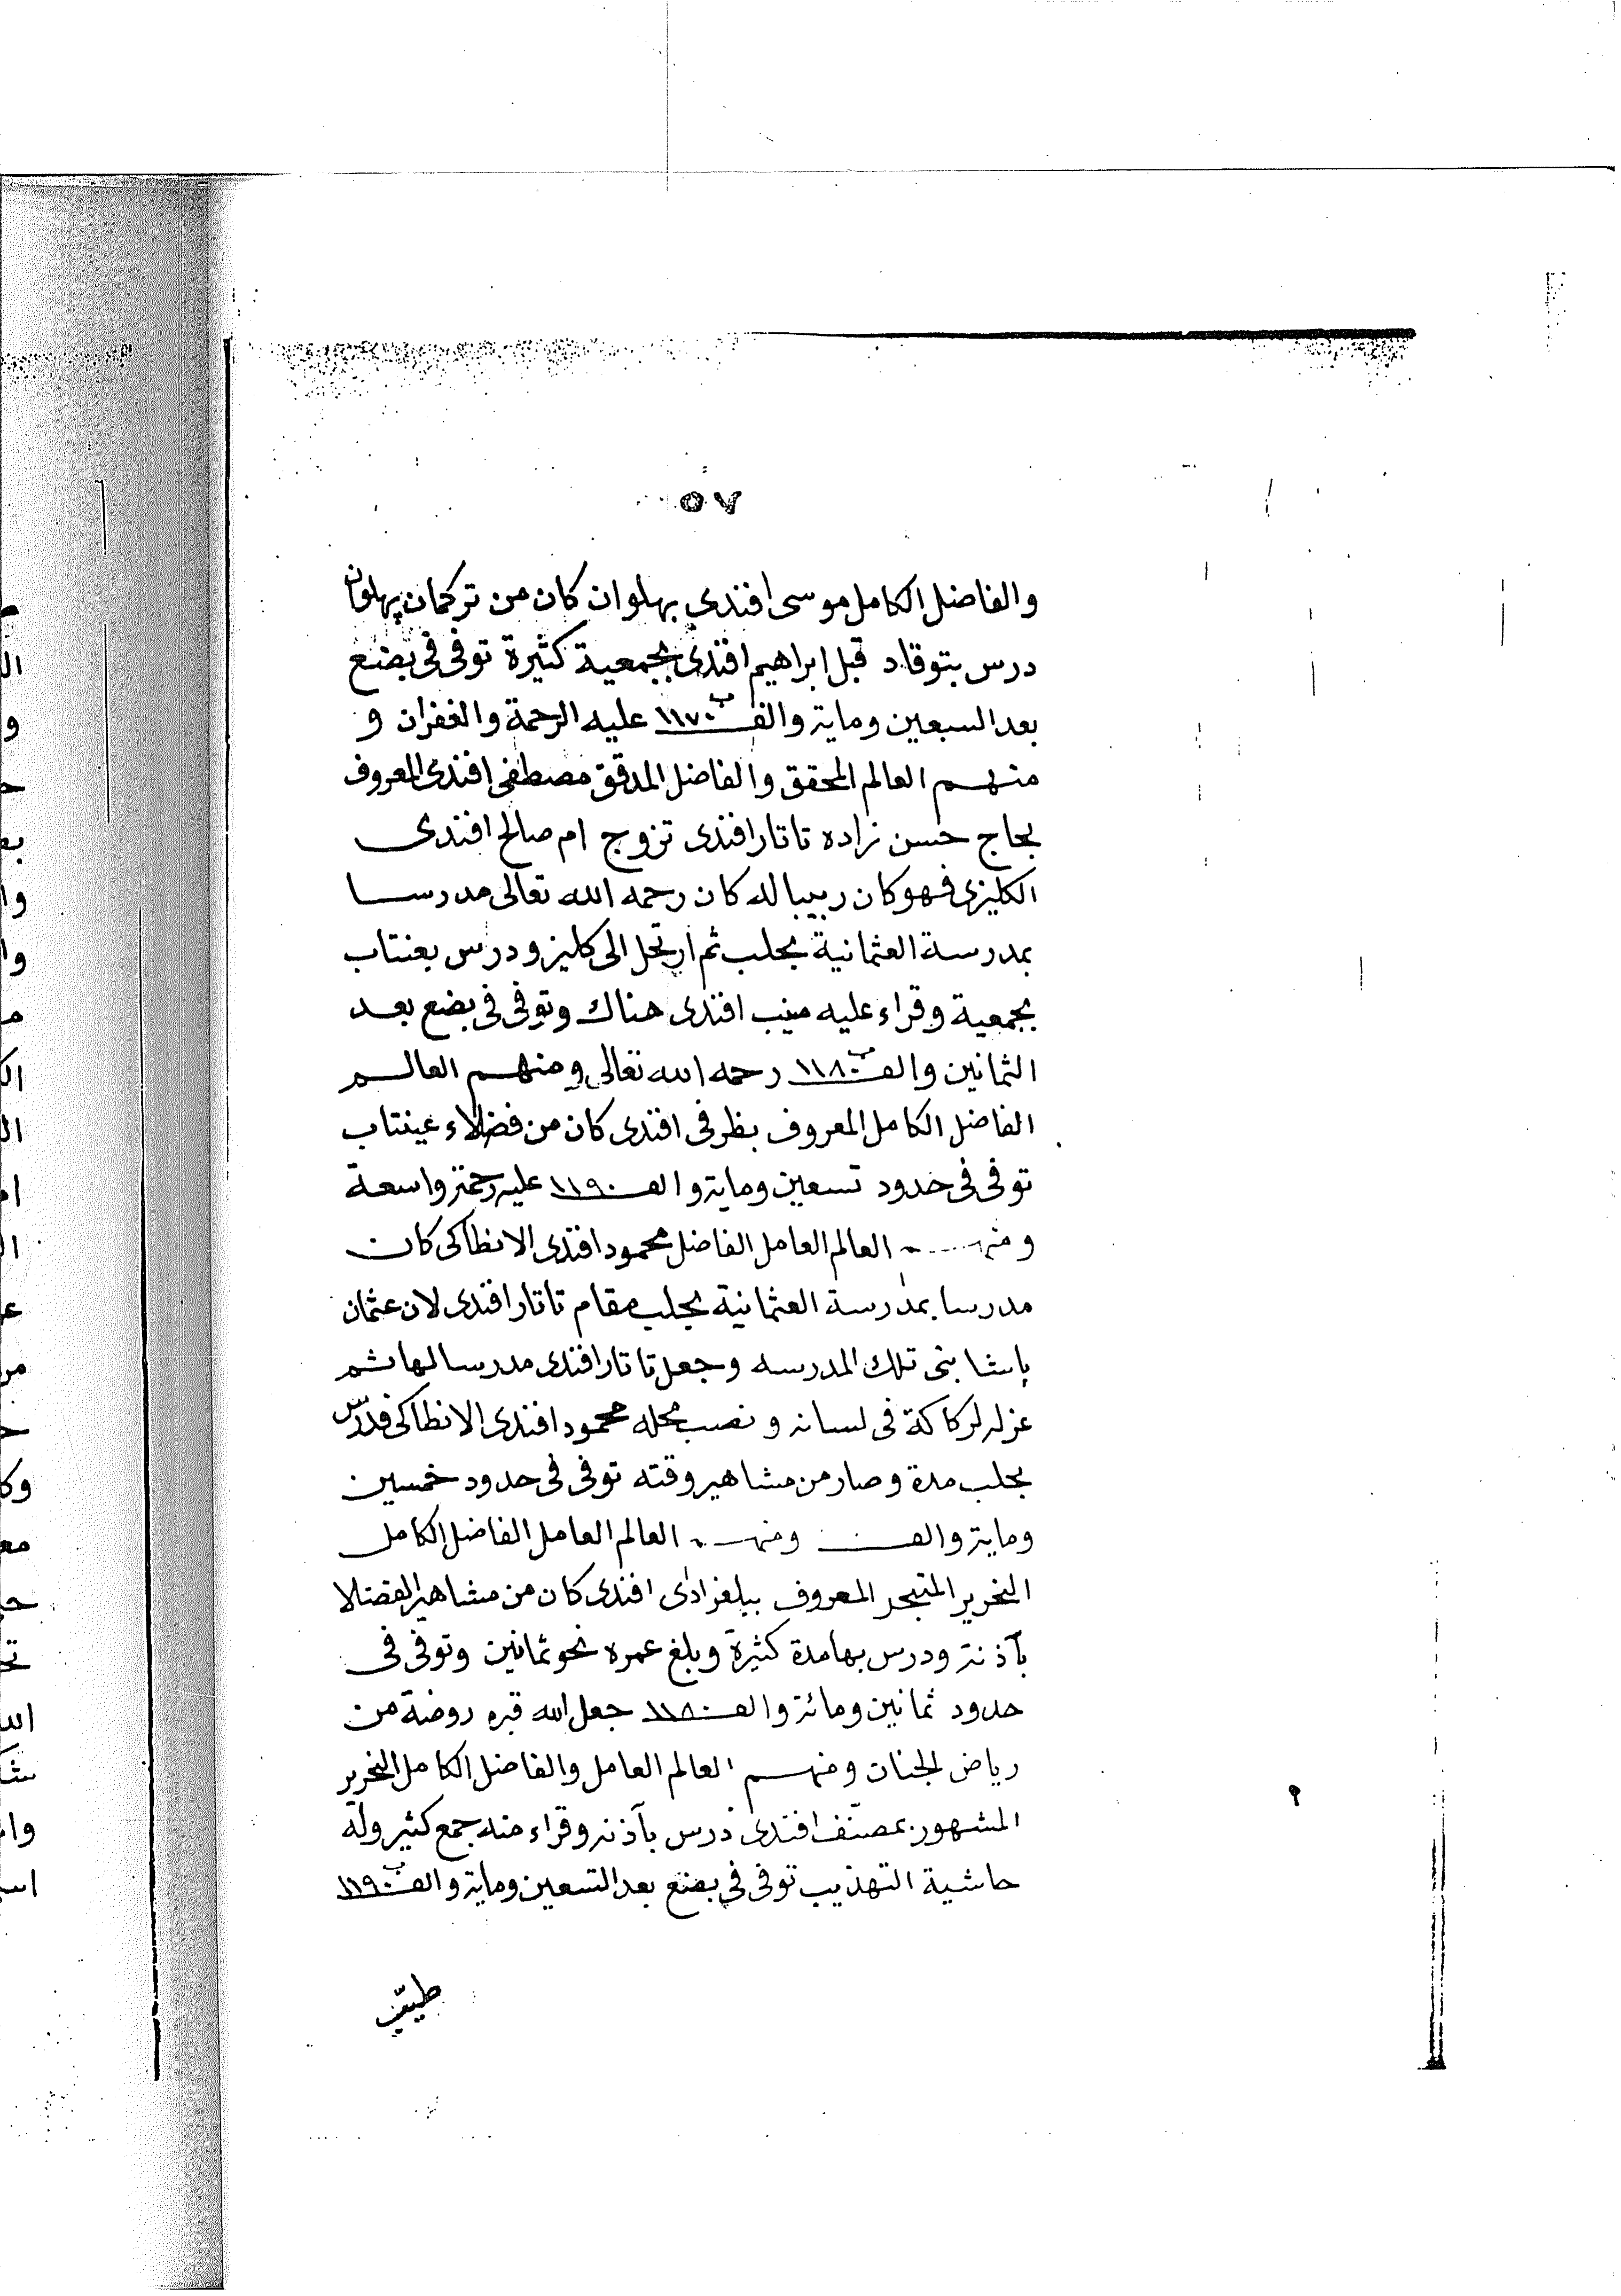 ٥٧
والفاضل الكامل موسى افندي بهلوان كان من تركمان پهلوان
درس بتوقاد قبل ابراهيم افندى بجمعية كثيرة توفى فى بضع
بعد السبعين وماية والف ١١٧٠ عليه الرحمة والغفران و
منهم العالم المحقق والفاضل المدقق مصطفى افندى المعروف
بحاج حسن زاده تاتار افندى تزوج ام صالح افندى
الكليزى فهو كان ربيبا له كان رحمه الله تعالى مدرسا
بمدرسة العثمانية بحلب ثم ارتحل الى كليز ودرس بعنتاب
بجمعية وقراء عليه منيب افندى هناك وتوفى فى بضع بعد
الثمانين والف ١١٨٠ رحمه الله تعالى ومنهم العالم
الفاضل الكامل المعروف بظرفى افندى كان من فضلاء عينتاب
توفى فى حدود تسعين وماية والف ١١٩٠ عليه رحمة واسعة
ومنهم العالم العامل الفاضل محمود افندى الانطاكى كان
مدرسا بمدرسة العثمانية بحلب مقام تاتار افندى لان عثمان
پاشا بنى تلك المدرسه وجعل تاتار افندى مدرسا لها ثم
عزله لركاكة فى لسانه ونصب محله محمود افندى الانطاكى فدرّس
بحلب مدة وصار من مشاهير وقته توفى فى حدود خمسين
وماية والف ومنهم العالم العامل الفاضل الكامل
النحرير المتبحر المعروف ببلغرادى افندى كان من مشاهير الفضلا
بآذنة ودرس بها مدة كثيرة وبلغ عمره نحو ثمانين وتوفى فى
حدود ثمانين ومائة والف ١١٨٠ جعل الله قبره روضة من
رياض الجنات ومنهم العالم العامل والفاضل الكامل النحرير
المشهور بمصنّف افندى درس بآذنه وقراء منه جمع كثير وله
حاشية التهذيب توفى فى بضع بعد التسعين وماية والف ١١٩٠